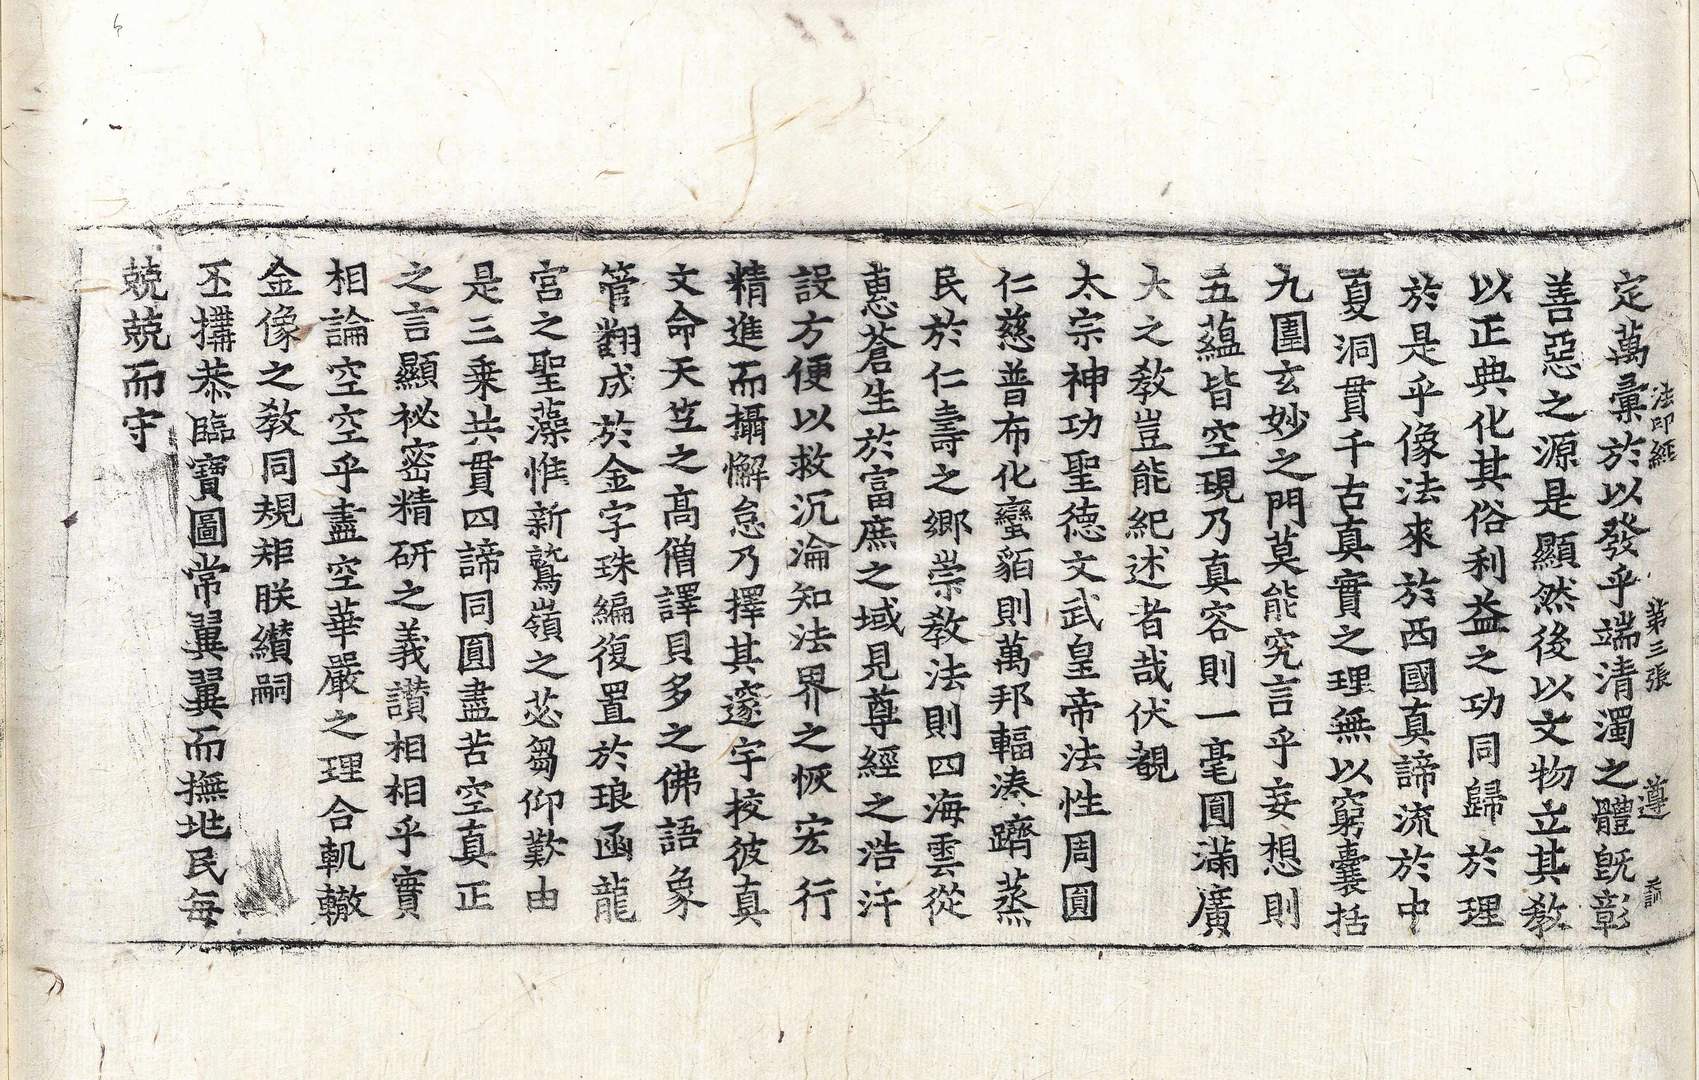 法印經 第三張 遵
定萬彙於以發乎端清濁之體旣彰
善惡之源是顯然後以文物立其敎
以正典化其俗利益之功同歸於理
於是乎像法來於西國真諦流於中
夏洞貫千古真實之理無以窮囊括
九圍玄妙之門莫能究言乎妄想則
五蘊皆空現乃真容則一毫圓滿廣
大之敎豈能紀述者哉伏覩
太宗神功聖德文武皇帝法性周圓
仁慈普布化蠻貊則萬邦輻湊躋蒸
民於仁壽之鄉崇敎法則四海雲從
惠蒼生於富庶之域見尊經之浩汗
設方便以救沉淪知法界之恢宏行
精進而攝懈怠乃擇其邃宇校彼真
文命天竺之高僧譯貝多之佛語象
管翻成於金字珠編復置於琅函龍
宮之聖藻惟新鷲嶺之苾芻仰歎由
是三乘共貫四諦同圓盡苦空真正
之言顯祕密精研之義讃相相乎實
相論空空乎盡空華嚴之理合軌轍
金像之敎同規矩朕纘嗣
丕搆恭臨寶圖常翼翼而撫地民每
兢兢而守